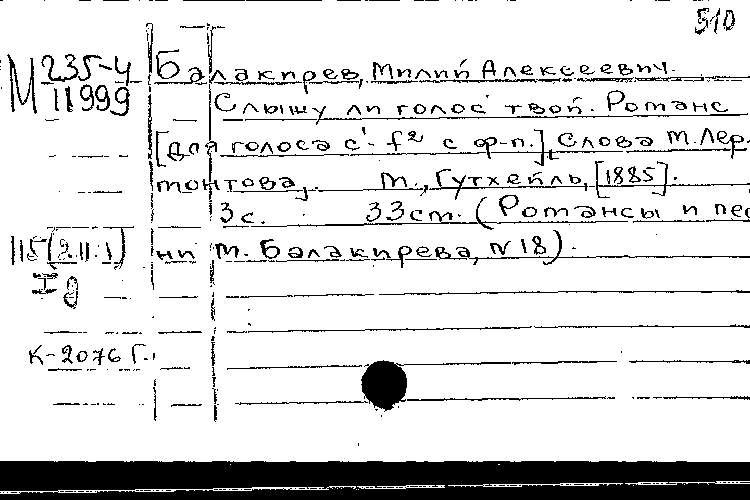 510
М 235-4 Балакирев, Милий Алексеевич.
11999 Слышу ли голос твой. Романс
[для голоса c¹- f² с ф-п.], Слова М. Лер-
монтова, М., Гутхейль, [1885].
3с. 33см. (Романсы и пес
115(2.11.1) ни М. Балакирева, N 18).
К-2076 Г.